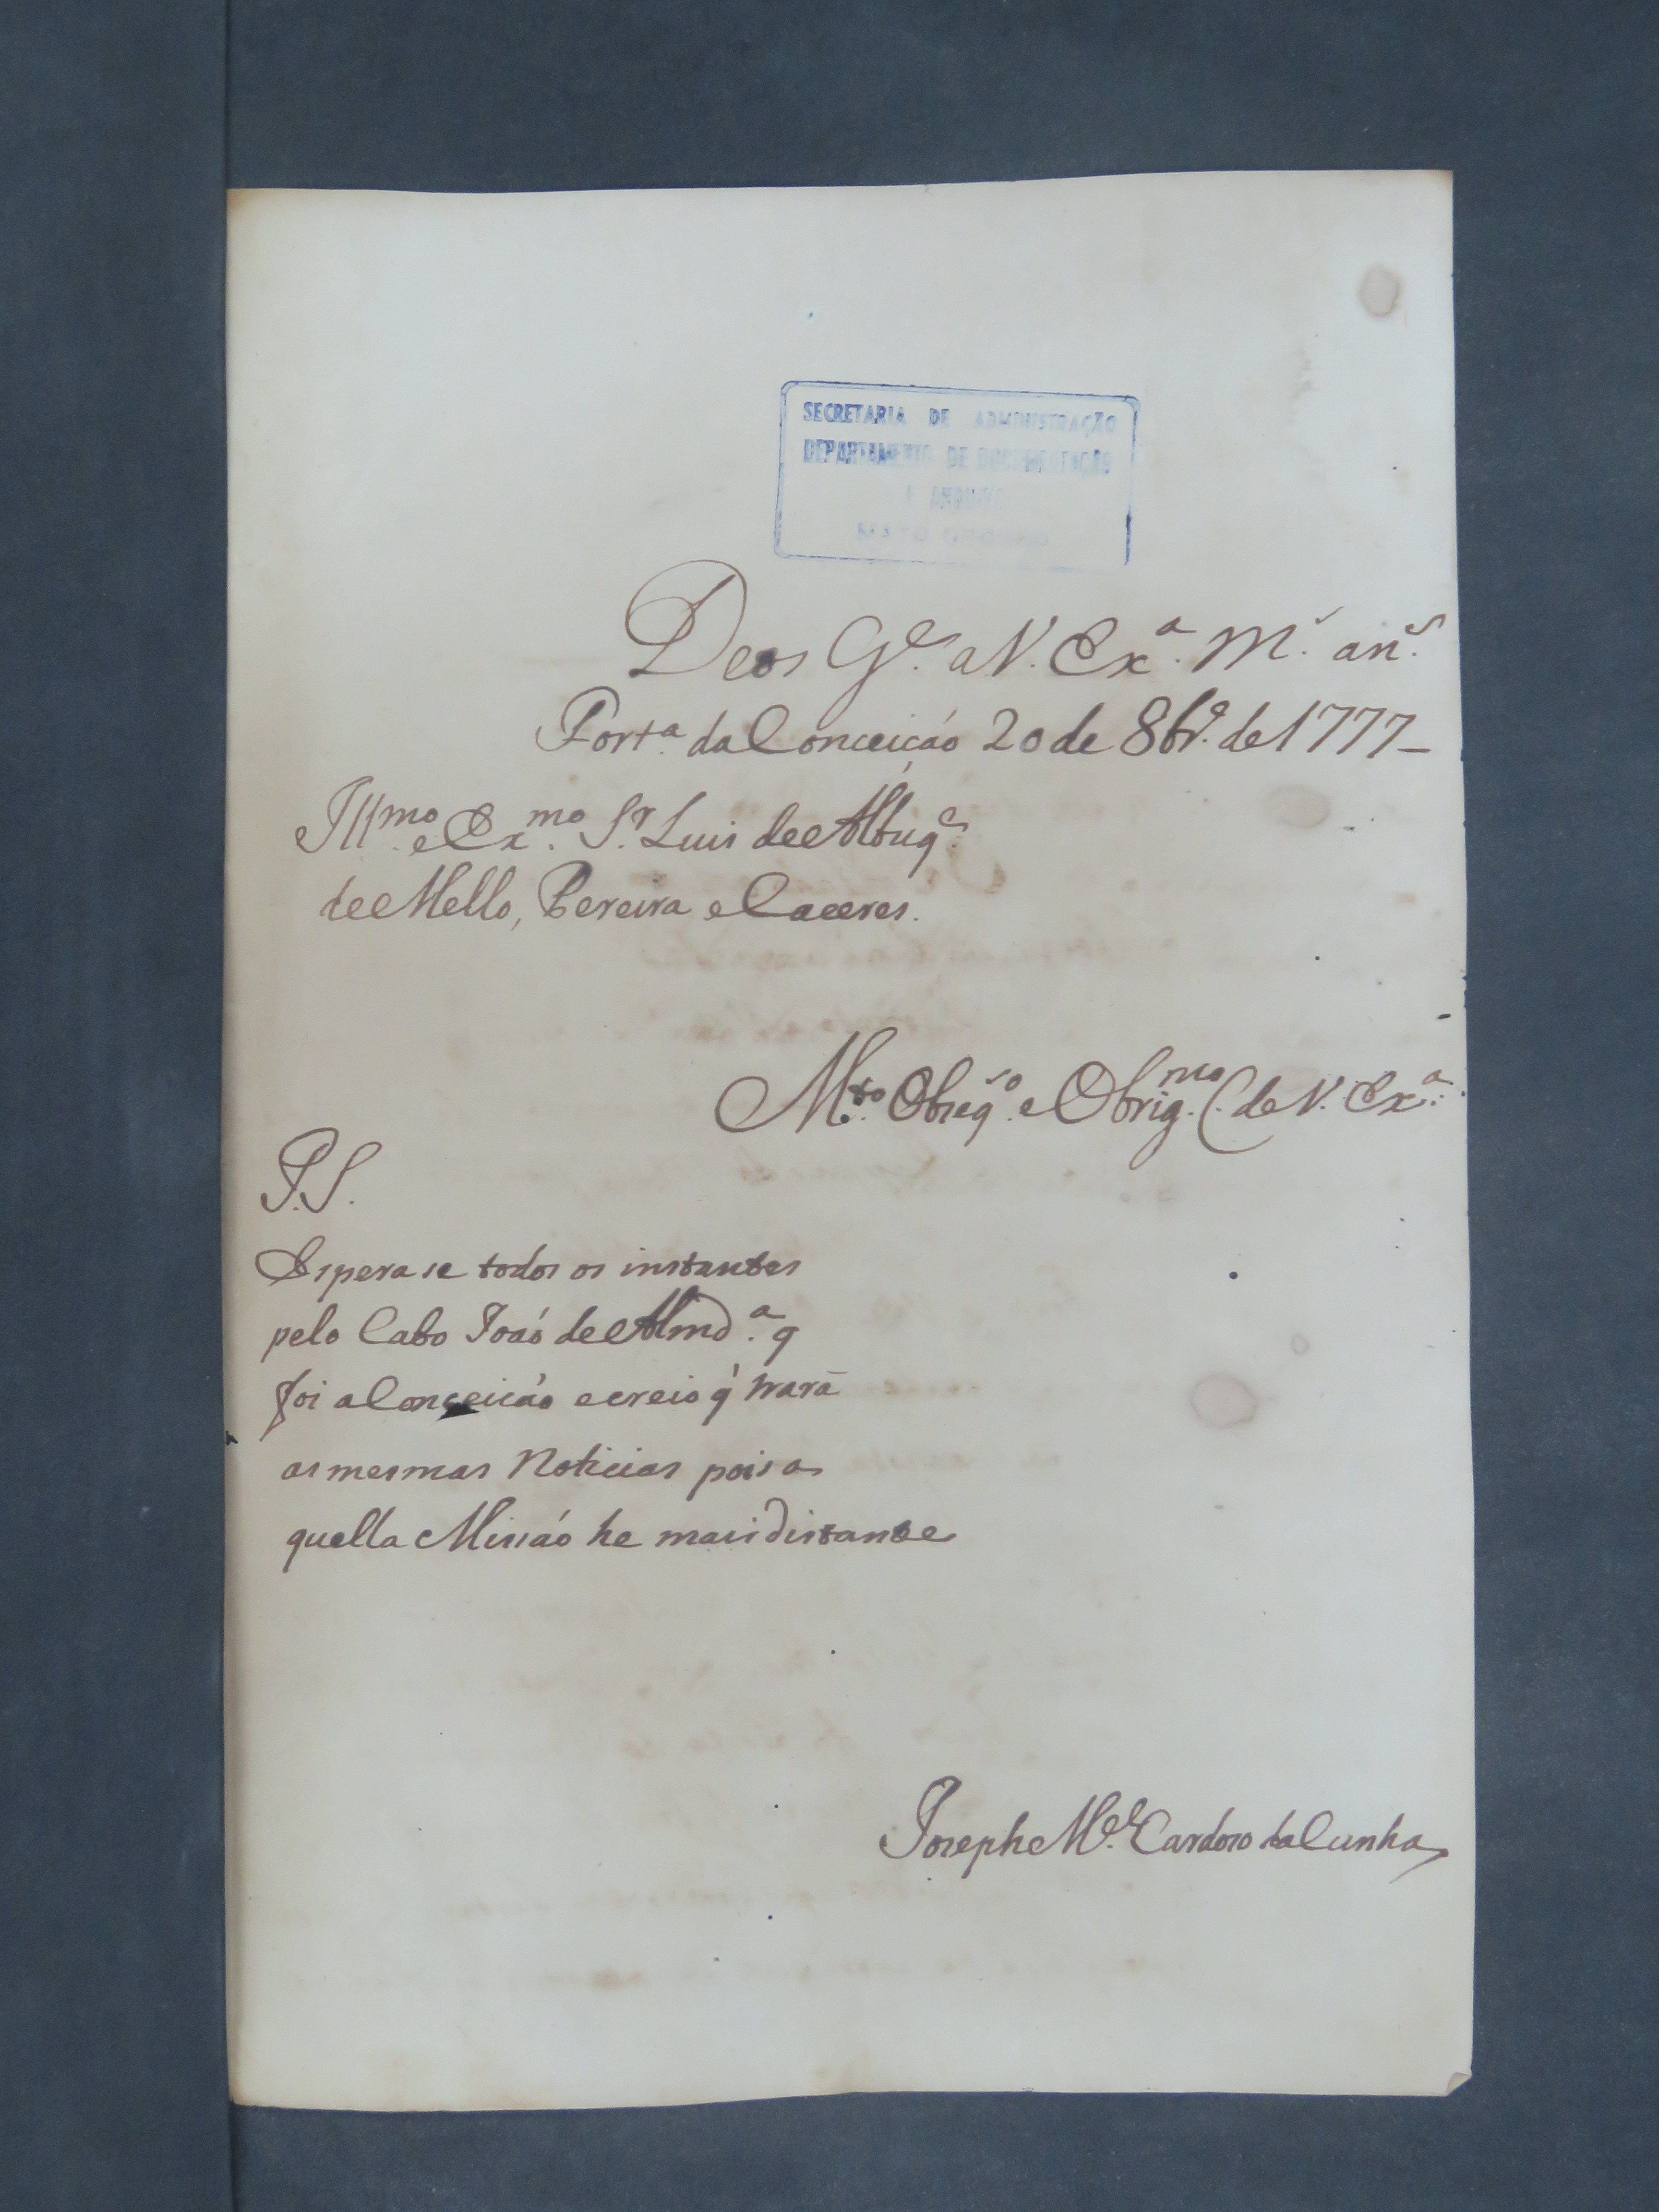 SECRETARIA DE ADMINISTRAÇÃO
DEPARTAMENTO DE DOCUMENTAÇÃO
E ARQUIVO
MATO GROSSO
Deos G.e a V. Ex.a m.s an.s
Fort.a da Conceicáo 20 de 8br.o de 1777_
Ill.mo e Ex.mo S.r Luis de Albuq.e
de Mello, Pereira e Caceres.
M.to Obreq.so e Obrig.mo C. de V. Ex.a
P.S.
Espera se todos os instantes
pelo Cabo Joaó de Almd.a q
foi a Conceicáo e creio q' trará
as mesmas Noticias pois a
quella Missáo he mais distante
Joseph M.el Cardozo da Cunha